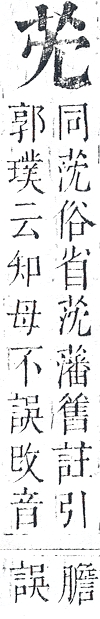 同莐俗省莐藩舊註引
郭璞云知母不誤改音
膽
誤